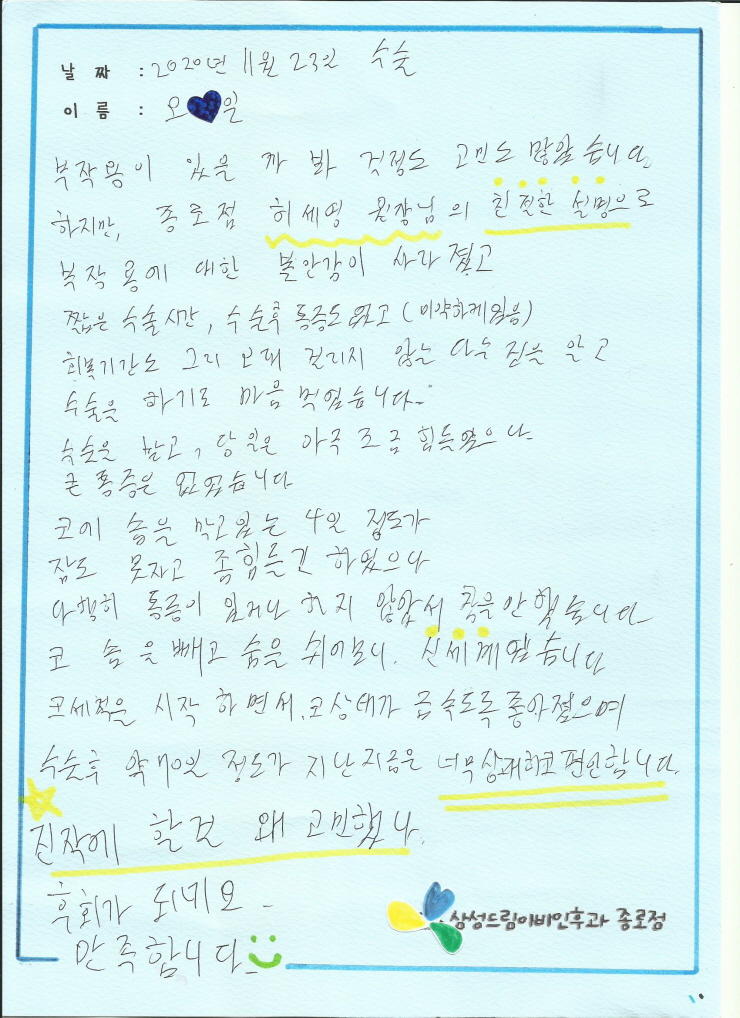 날 짜 : 2020년 11월 23일 수술
이 름 : 오 일
부작용이 있을 까 봐 걱정도 고민도 많았습니다
하지만, 종로점 허세영 원장님의 친절한 설명으로
부작용에 대한 불안감이 사라졌고
짧은 수술시간, 수술후 통증도 없고 (미약하게있음)
회복기간도 그리 오래 걸리지 않는 다는 점을 알고
수술을 하기로 마음 먹었습니다.
수술을 받고, 당일은 아주 조금 힘들었으나
큰 통증은 없었습니다
코에 솜을 막고있는 4일 정도가
잠도 못자고 좀힘들긴 하였으나
다행히 통증이 있거나 하지 않았서 약을안 했습니다
코 솜을 빼고 숨을 쉬어보니. 신세계였습니다
코세척을 시작 하면서, 코상태가 급속도록 좋아졌으며
수술후 약 70일 정도가 지난지금은 너무상쾌하고 편안합니다.
진작에 할걸 왜 고민했나.
후회가 되네요
만족합니다
삼성드림이비인후과 종로점